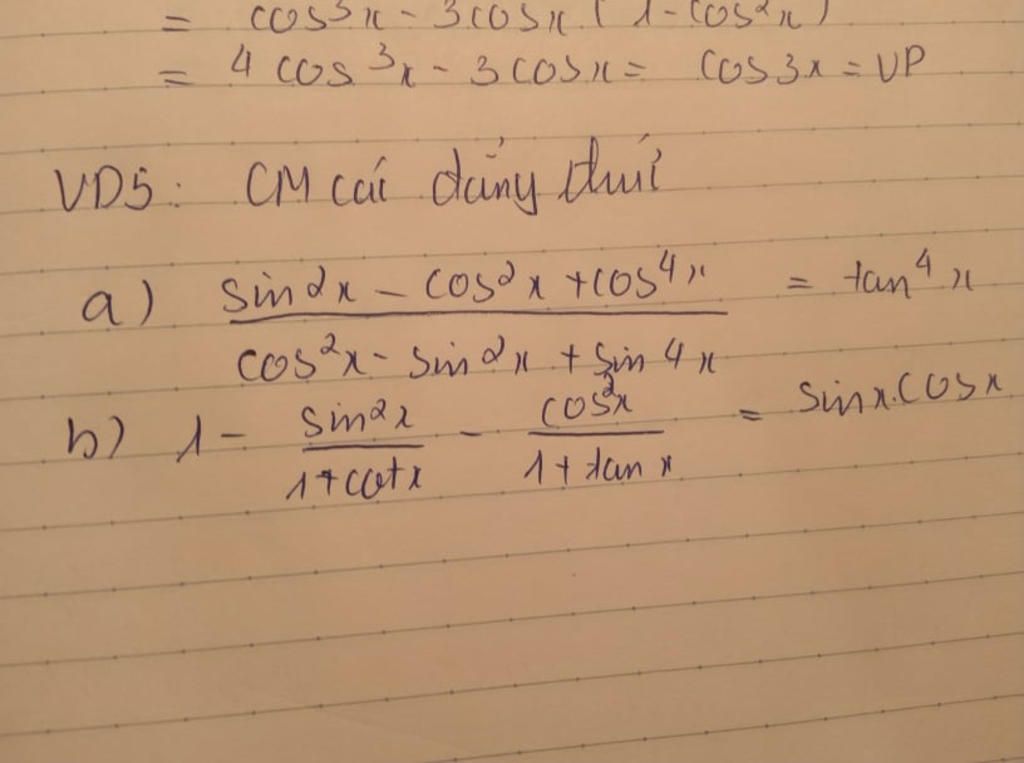 = cos³x - 3cosx (1 - cos²x)
= 4cos³x - 3cosx = cos3x = VP
VD5: CM cái đẳng thứi
a) (sin²x - cos²x + cos⁴x) / (cos²x - sin²x + sin⁴x) = tan⁴x
b) 1 - sin²x / (1 + cotx) - cos²x / (1 + tanx) = sinx.cosx